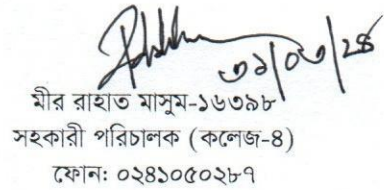 ৩১/০৩/২৪
মীর রাহাত মাসুম-১৬৩৯৮
সহকারী পরিচালক (কলেজ-৪)
ফোন: ০২৪১০৫০২৮৭